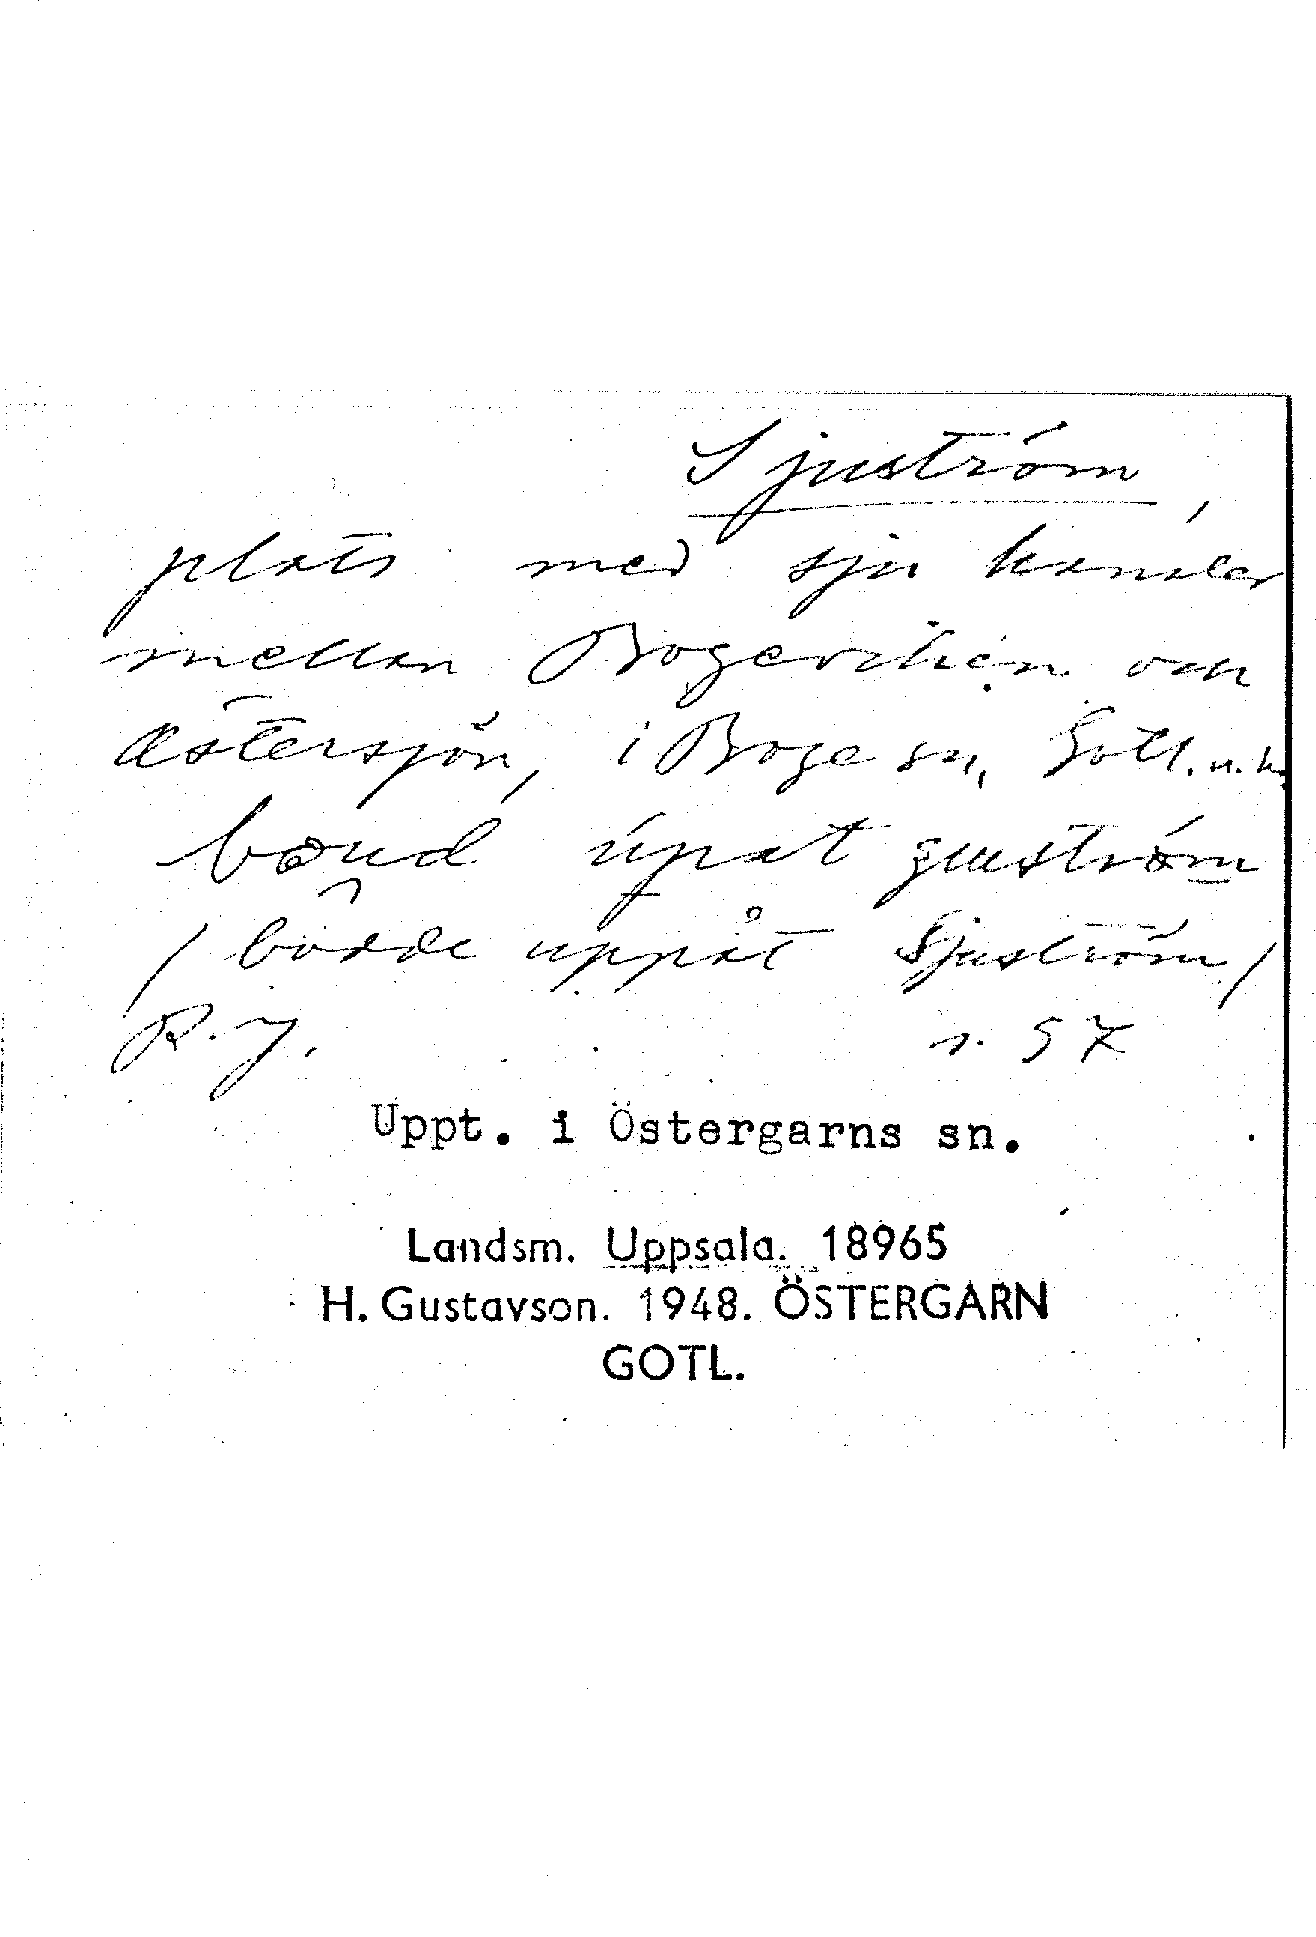 Sjuström,
plats med sju kanaler
mellan Bogeviken och
Östersjön, i Boge sn, Gotl. n.h.
úpat
/ bodde uppåt Sjuström /
R.J. s. 57
Uppt. i Östergarns sn.
Landsm. Uppsala. 18965
H. Gustavson. 1948. ÖSTERGARN
GOTL.